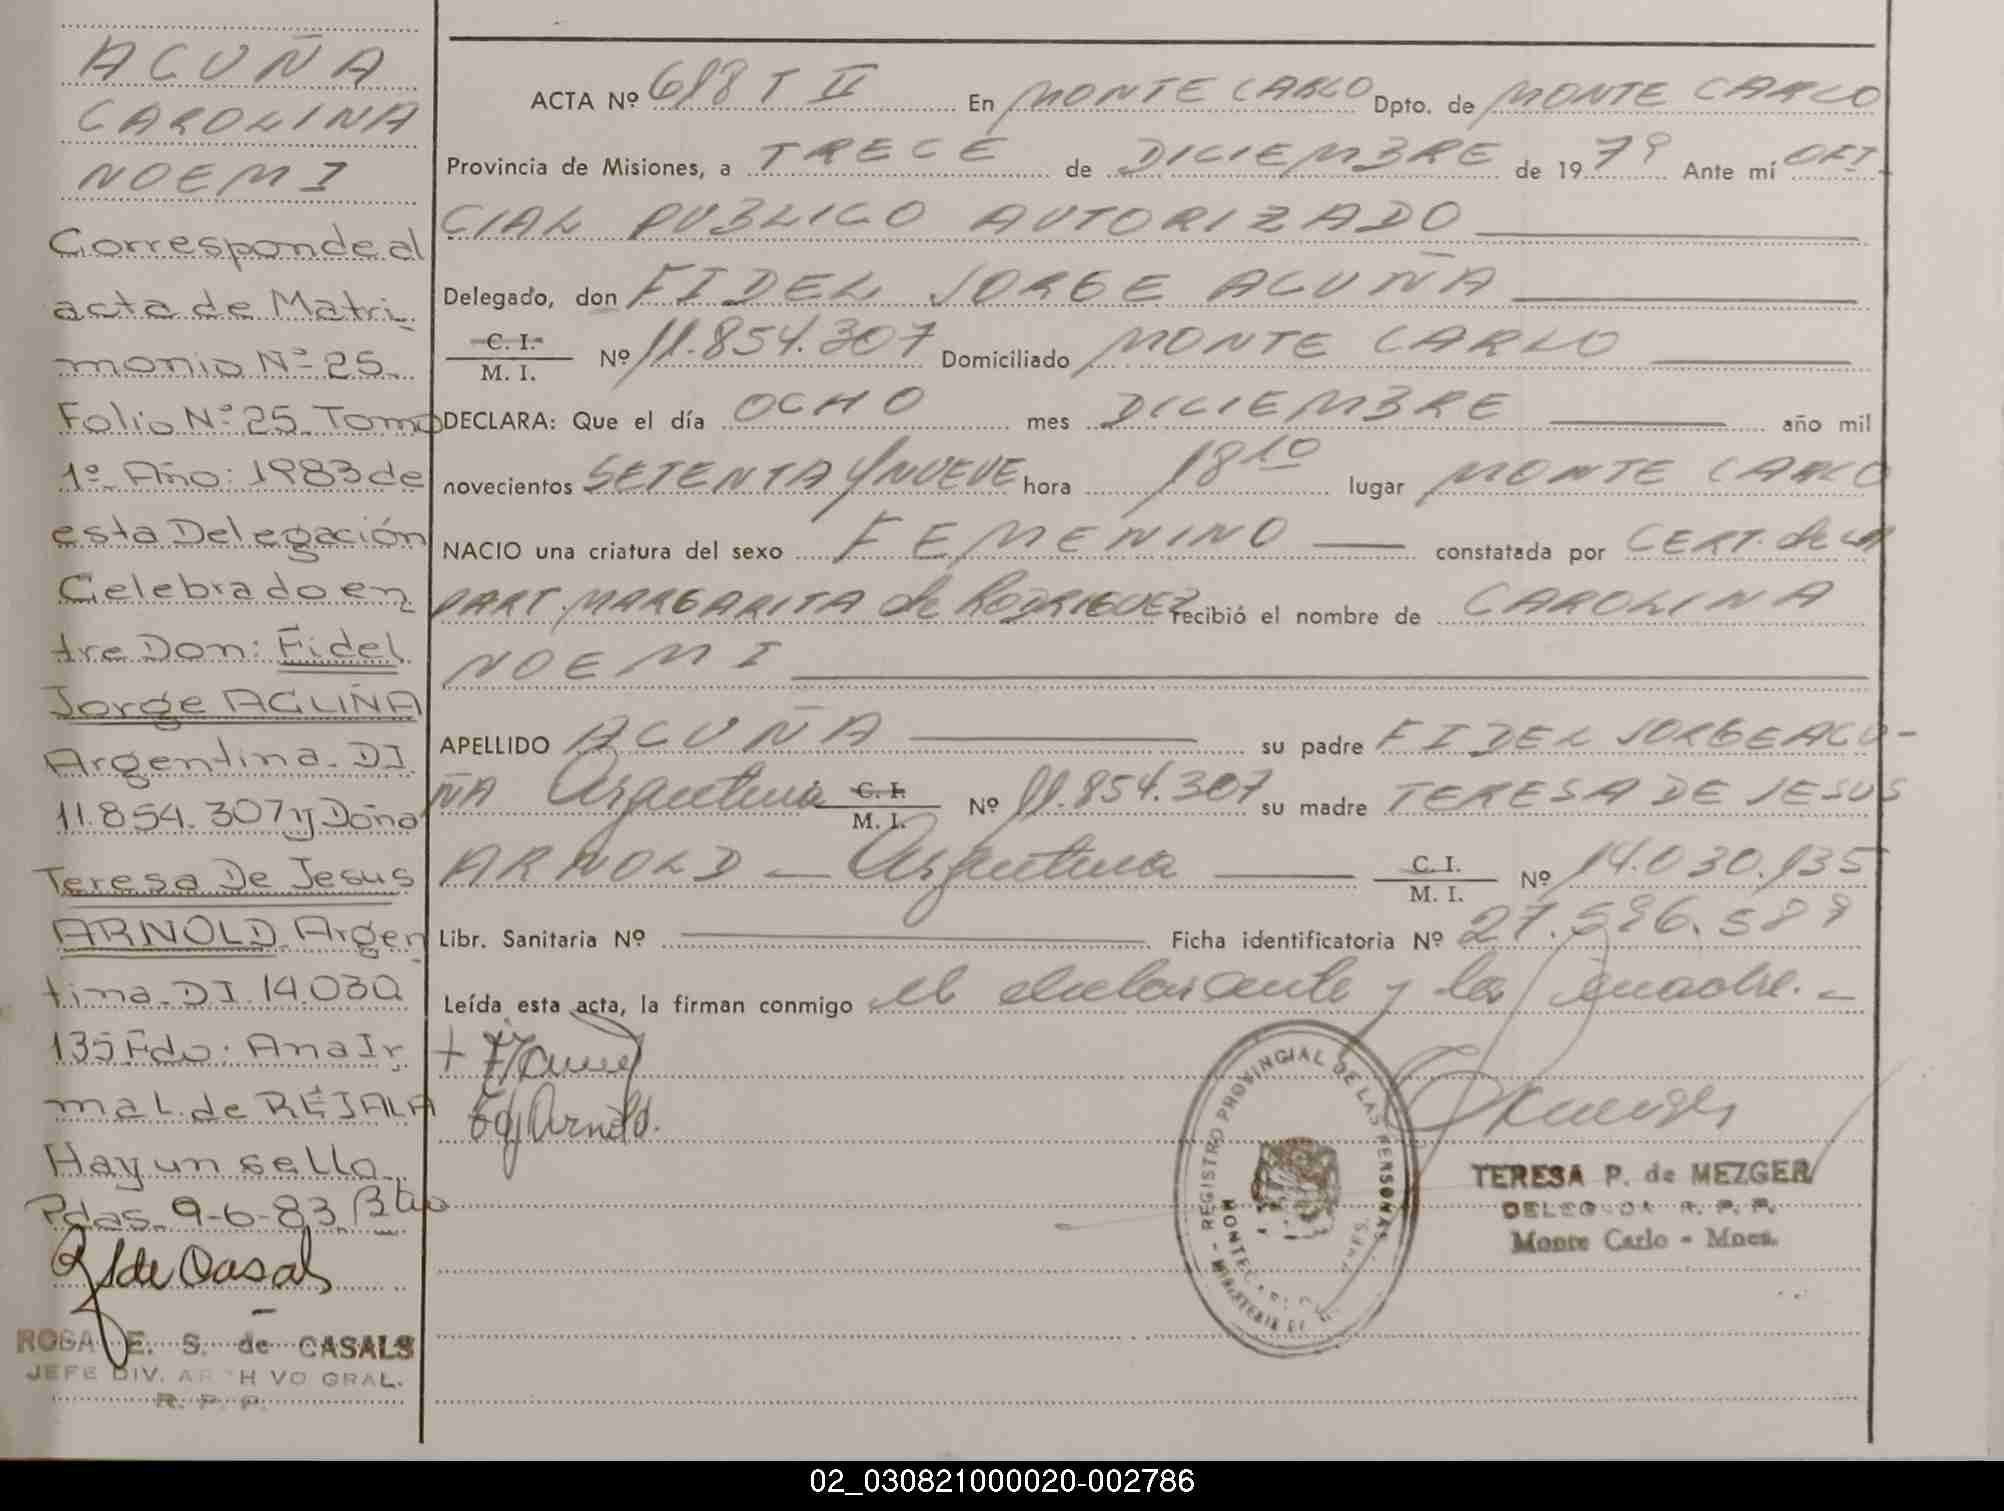 ACUÑA
CAROLINA
NOEMI
Corresponde al
acta de Matri-
monio Nº 25.
Folio Nº 25. Tomo
1º Año: 1983 de
esta Delegación
Celebrado en
tre Don: Fidel
Jorge ACUÑA
Argentina. DI
11.854.307 y Doña
Teresa De Jesus
ARNOLD. Argen
tina. DI. 14.030
135 Fdo: Ana Ir
ma L. de REJALA
Hay un sello.
Pdas. 9-6-83
ROSA E. S. de CASALS
JEFE DIV. ARCHIVO GRAL.
R. P. P.
ACTA Nº 618 T II En MONTE CARLO Dpto. de MONTE CARLO
Provincia de Misiones, a TRECE de DICIEMBRE de 1979 Ante mí OFI-
CIAL PUBLICO AUTORIZADO
Delegado, don FIDEL JORGE ACUÑA
C. I.
M. I. Nº 11.854.307 Domiciliado MONTE CARLO
DECLARA: Que el día OCHO mes DICIEMBRE año mil
novecientos SETENTA Y NUEVE hora 18 10 lugar MONTE CARLO
NACIO una criatura del sexo FEMENINO constatada por CERT. de la
PART. MARGARITA de RODRIGUEZ recibió el nombre de CAROLINA
NOEMI
APELLIDO ACUÑA su padre FIDEL JORGE ACU-
ÑA Argentina C. I. M. I. Nº 11.854.307 su madre TERESA DE JESUS
ARNOLD - Argentina C. I. M. I. Nº 14.030.135
Libr. Sanitaria Nº Ficha identificatoria Nº 27.596.589
Leída esta acta, la firman conmigo el declarante y la madre.-
Arnold.
REGISTRO PROVINCIAL DE LAS PERSONAS
TERESA P. de MEZGER
DELEGADA R. P. P.
Monte Carlo - Mnes.
02_030821000020-002786